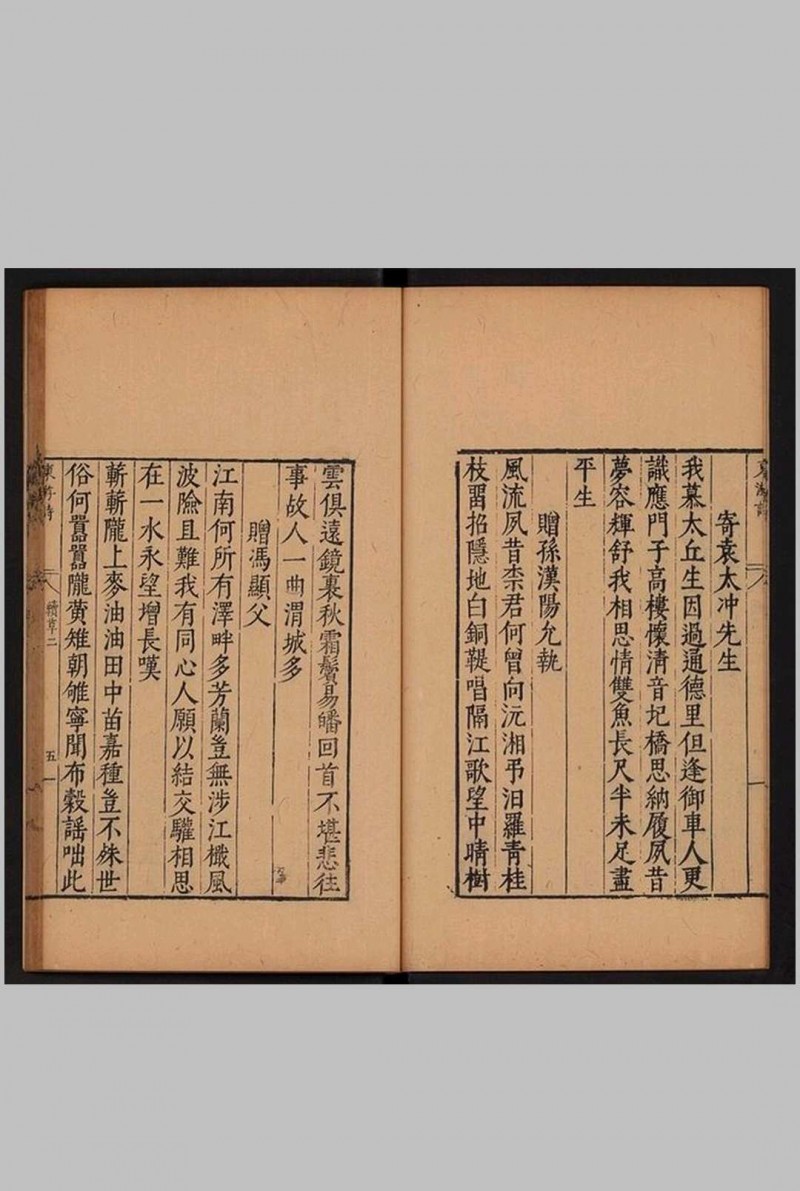 寄袁太冲先生
我慕太丘生因過通德里但逢御車人更
識應門子高樓懷清音圯橋思納履夙昔
夢容輝舒我相思情雙魚長尺半未足盡
平生
贈孫漢陽允執
風流夙昔柰君何曾向沅湘弔汨羅青桂
枝畱招隱地白銅鞮唱隔江歌望中晴樹
雲俱遠鏡裏秋霜鬢易皤回首不堪悲往
事故人一曲渭城多
贈馮顯父
江南何所有澤畔多芳蘭豈無涉江檝風
波險且難我有同心人願以結交驩相思
在一水永望增長嘆
蔪蔪隴上麥油油田中苗嘉種豈不殊世
俗何囂囂隴黄雉朝雊寧聞布穀謡咄此
續草二
五